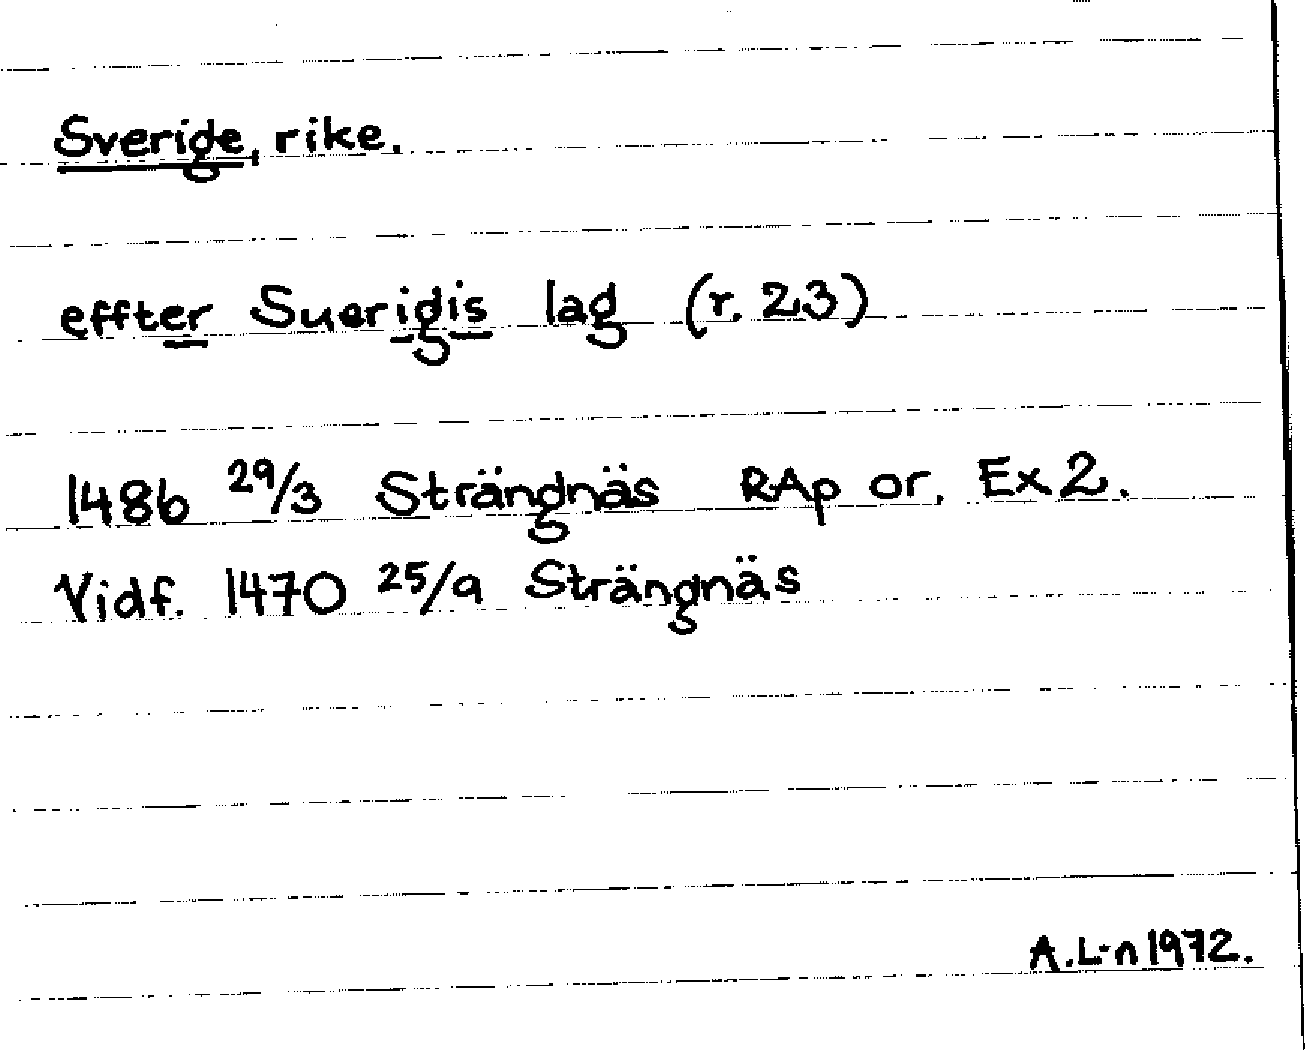 Sverige, rike.
effter Suerigis lag (r. 23)
1486 29/3 Strängnäs RAp or. Ex 2.
Vidf. 1470 25/9 Strängnäs
A.L-n 1972.